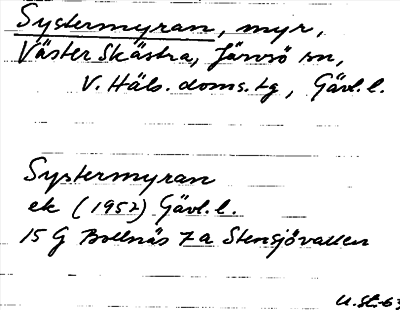 Systermyran, myr,
Väster Skästra, Järvsö sn,
V. Häls. doms.tg, Gävl.l.
Systermyran
ek (1952) Gävl.l.
15 G Bollnäs 7a Stensjövallen
U.St.-63